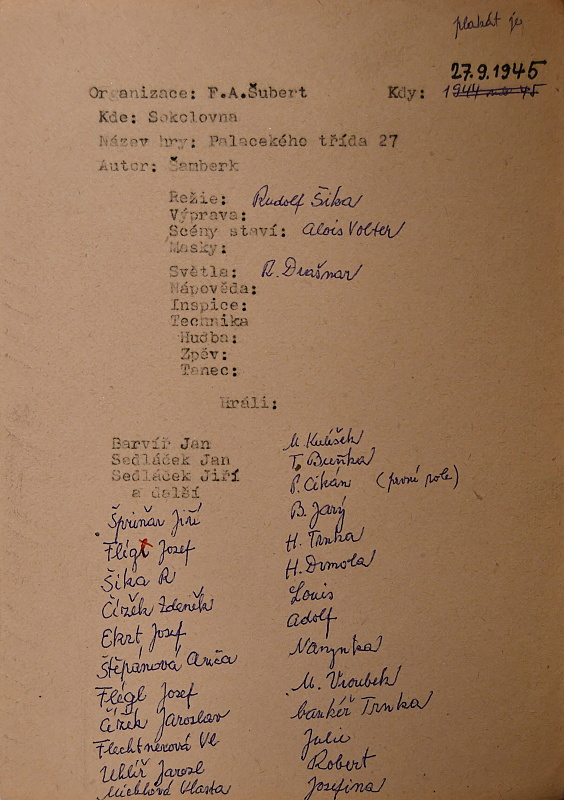 plakát je
27.9.1945
Organizace: F.A.Šubert Kdy: 1944
Kde: Sokolovna
Název hry: Palackého třída 27
Autor: Šamberk
Režie: Rudolf Šika
Výprava:
Scény staví: Alois Volter
Masky:
Světla: R. Drašnar
Nápověda:
Inspice:
Technika
Hudba:
Zpěv:
Tanec:
Hráli:
Barvíř Jan M. Kulíšek
Sedláček Jan T. Buňka
Sedláček Jiří P. Cikán (první role)
a další B. Jarý
Špriňar Jiří H. Trnka
Flégl Josef H. Drmola
Šika R Louis
Čížek Zdeněk Adolf
Ekrt Josef Nanynka
Štěpánová Anča M. Vroubek
Flégl Josef bankéř Trnka
Čížek Jaroslav Julie
Flechtnerová Vl Robert
Uhlíř Jarosl Josefina
Michlová Vlasta